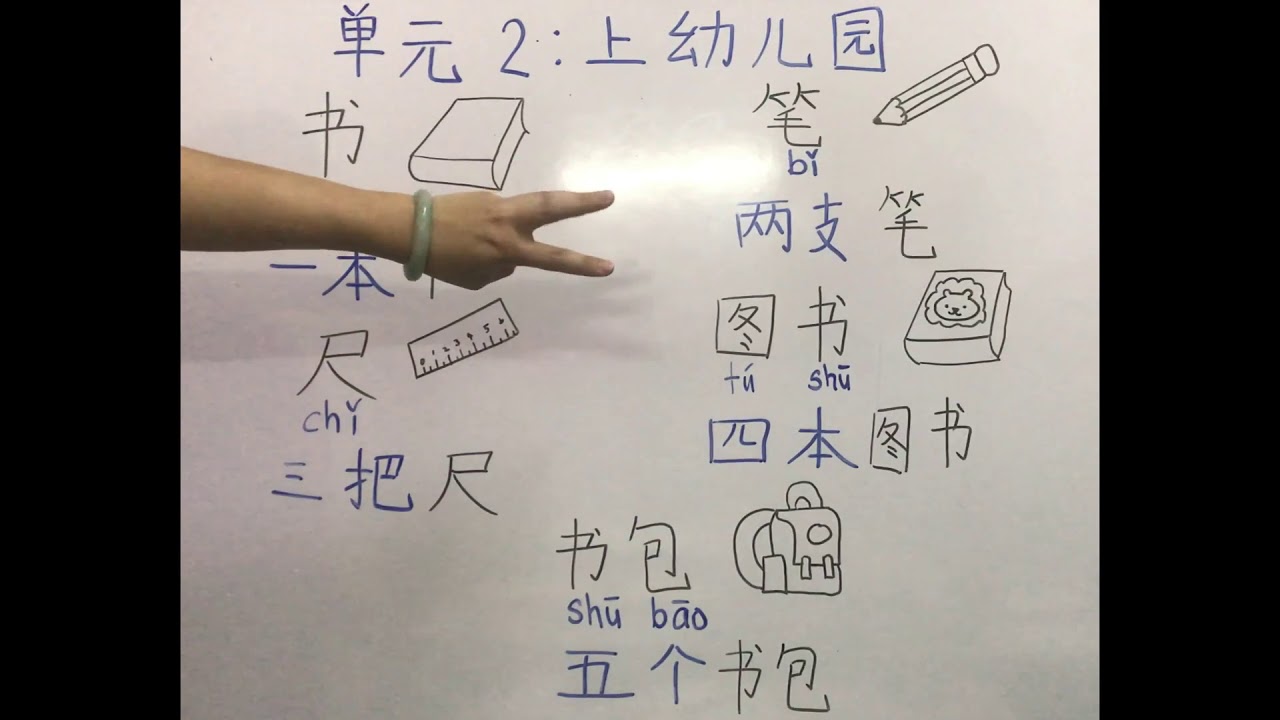 单元 2:上幼儿园
书
一本
尺
chǐ
三把尺
笔
bǐ
两支笔
图书
tú shū
四本图书
书包
shū bāo
五个书包